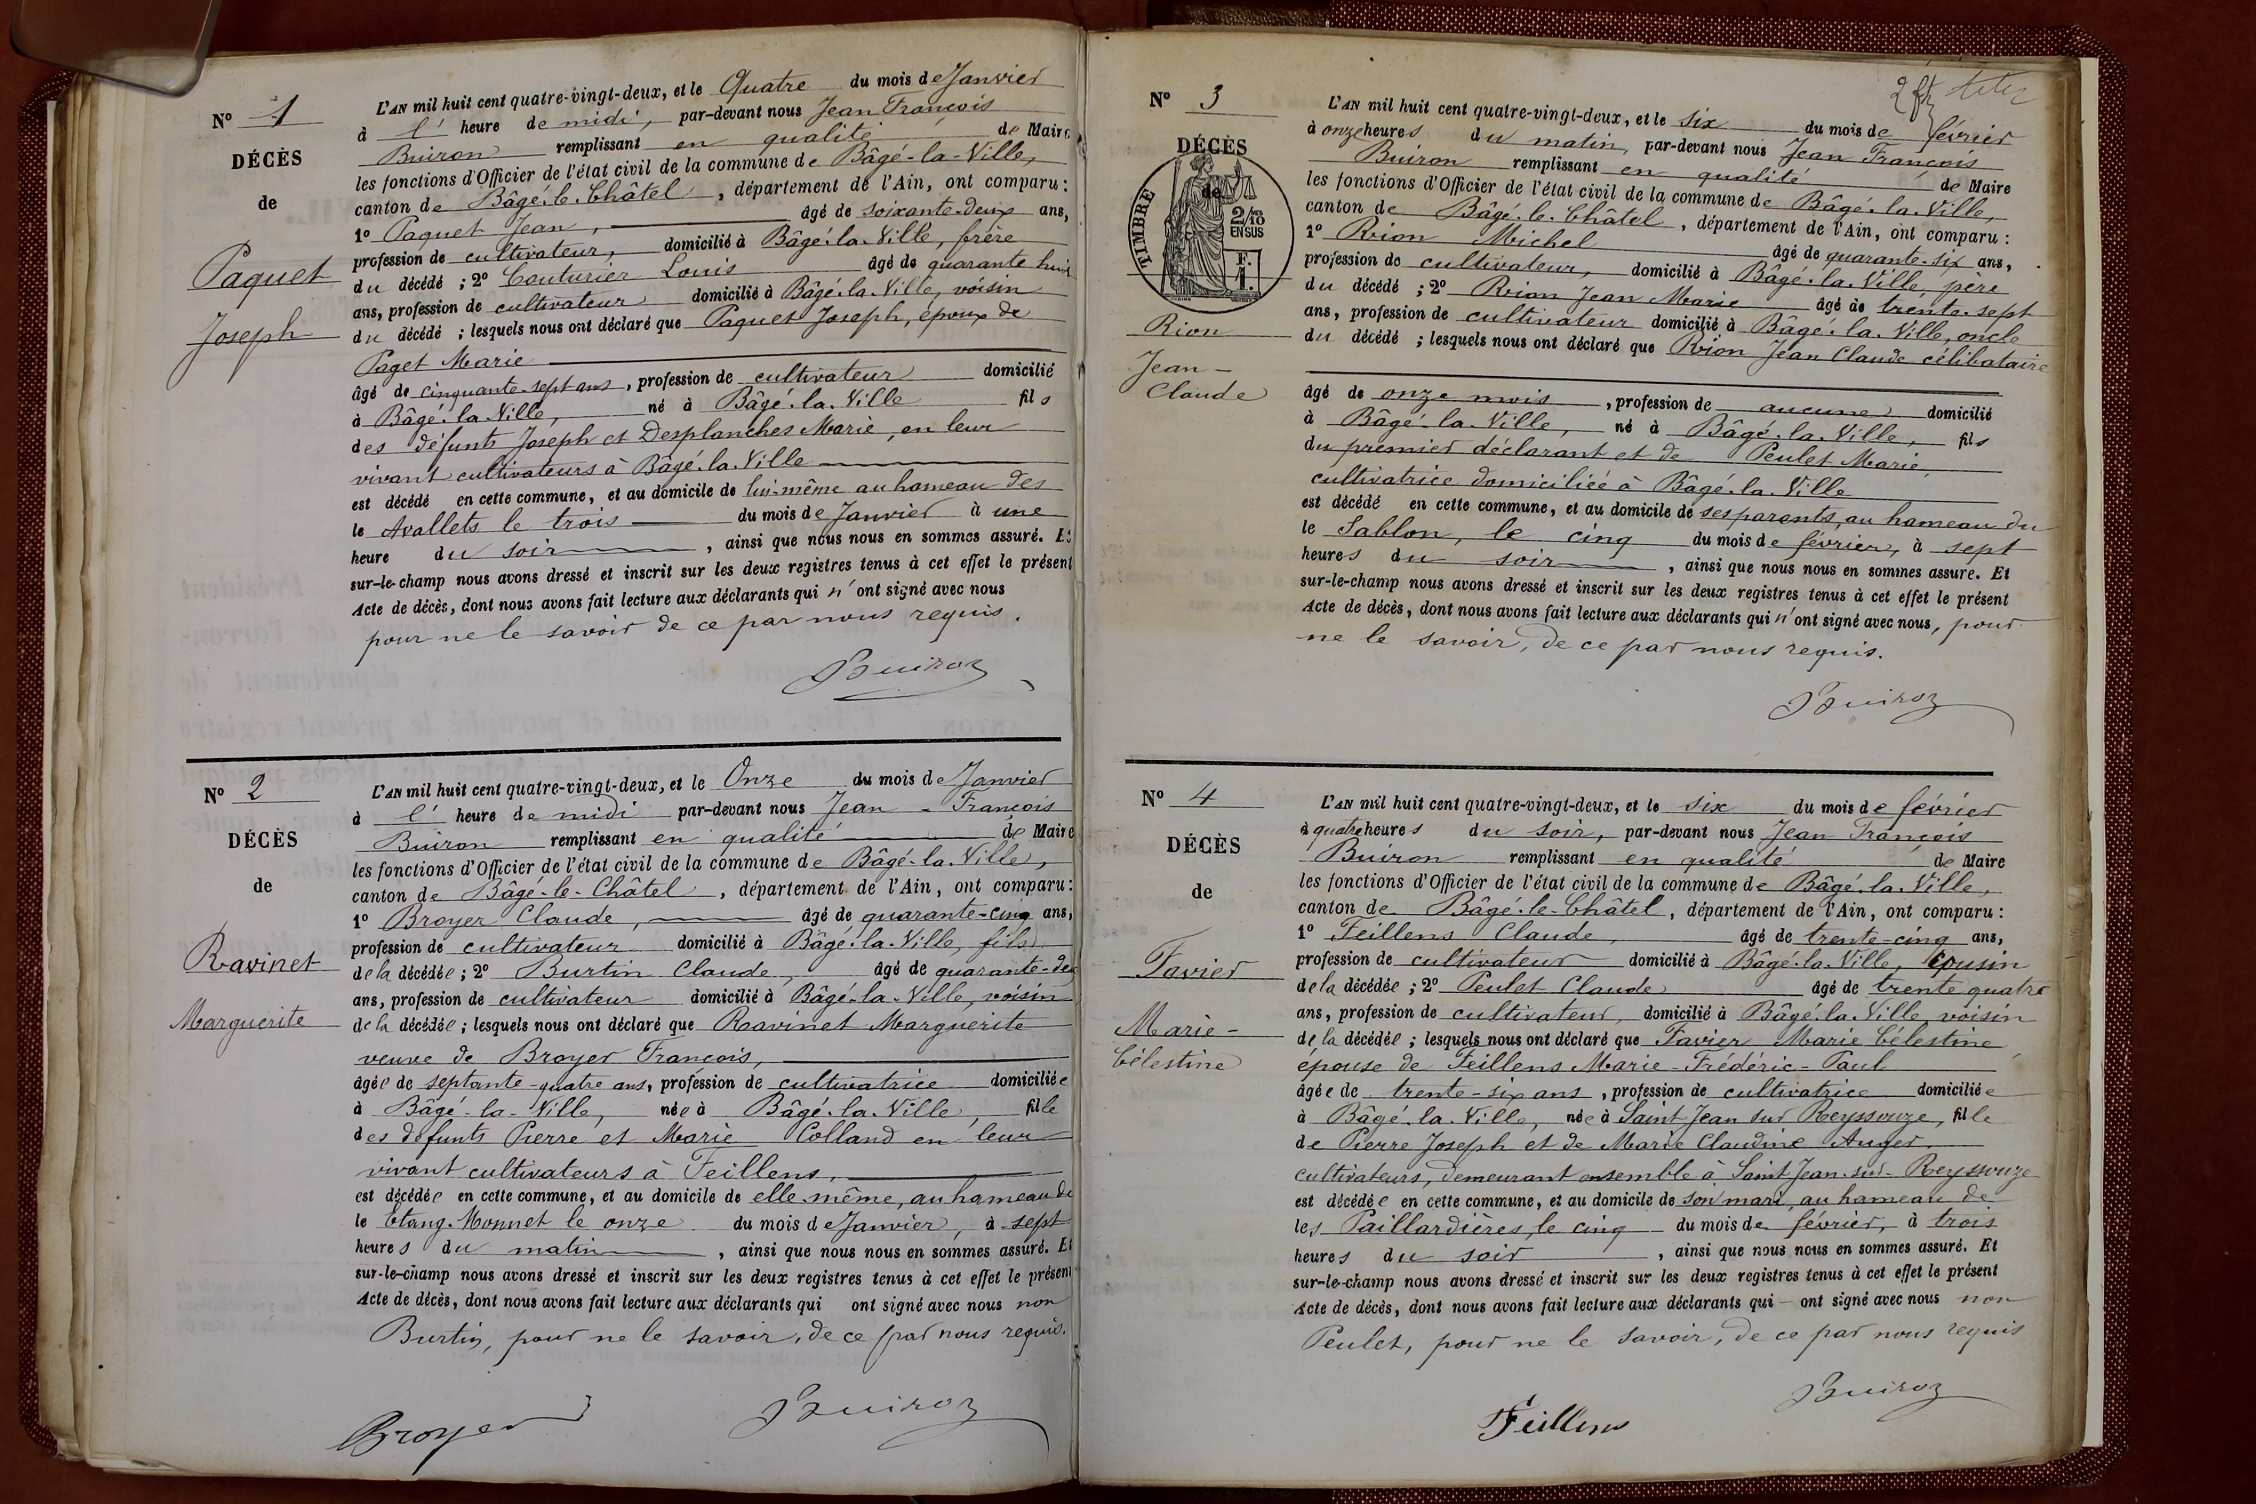 N° 1
DÉCÈS
de
Paquet
Joseph
L'AN mil huit cent quatre-vingt-deux, et le Quatre du mois de Janvier
à l' heure de midi, par-devant nous Jean François
Buiron remplissant en qualité de Maire
les fonctions d'Officier de l'état civil de la commune de Bâgé-la-Ville,
canton de Bâgé-le-Châtel, département de l'Ain, ont comparu :
1° Paquet Jean, âgé de soixante-deux ans,
profession de cultivateur, domicilié à Bâgé-la-Ville, frère
du décédé ; 2° Couturier Louis âgé de quarante huit
ans, profession de cultivateur domicilié à Bâgé-la-Ville, voisin
du décédé ; lesquels nous ont déclaré que Paquet Joseph, époux de
Paget Marie
âgé de cinquante-sept ans, profession de cultivateur domicilié
à Bâgé-la-Ville, né à Bâgé-la-Ville fils
des défunts Joseph et Desplanches Marie, en leur
vivant cultivateurs à Bâgé-la-Ville
est décédé en cette commune, et au domicile de lui-même au hameau des
le Avallets le trois du mois de Janvier à une
heure du soir, ainsi que nous nous en sommes assuré. Et
sur-le-champ nous avons dressé et inscrit sur les deux registres tenus à cet effet le présent
Acte de décès, dont nous avons fait lecture aux déclarants qui n'ont signé avec nous
pour ne le savoir de ce par nous requis.
Buiron
N° 2
DÉCÈS
de
Ravinet
Marguerite
L'AN mil huit cent quatre-vingt-deux, et le Onze du mois de Janvier
à l' heure de midi par-devant nous Jean-François
Buiron remplissant en qualité de Maire
les fonctions d'Officier de l'état civil de la commune de Bâgé-la-Ville,
canton de Bâgé-le-Châtel, département de l'Ain, ont comparu :
1° Broyer Claude, âgé de quarante-cinq ans,
profession de cultivateur domicilié à Bâgé-la-Ville, fils
de la décédée ; 2° Burtin Claude, âgé de quarante-deux
ans, profession de cultivateur domicilié à Bâgé-la-Ville, voisin
de la décédée ; lesquels nous ont déclaré que Ravinet Marguerite
veuve de Broyer François,
âgée de septante-quatre ans, profession de cultivatrice domiciliée
à Bâgé-la-Ville, née à Bâgé-la-Ville, fille
des défunts Pierre et Marie Colland en leur
vivant cultivateurs à Feillens,
est décédée en cette commune, et au domicile de elle-même, au hameau de
le Etang-Monnet le onze du mois de Janvier, à sept
heures du matin, ainsi que nous nous en sommes assuré. Et
sur-le-champ nous avons dressé et inscrit sur les deux registres tenus à cet effet le présent
Acte de décès, dont nous avons fait lecture aux déclarants qui ont signé avec nous non
Burtin, pour ne le savoir, de ce par nous requis.
Broyer Buiron
N° 3
DÉCÈS
de
TIMBRE
2/10
EN SUS
F.
1.
Rion
Jean-
Claude
L'AN mil huit cent quatre-vingt-deux, et le six du mois de février
à onze heures du matin, par-devant nous Jean François
Buiron remplissant en qualité de Maire
les fonctions d'Officier de l'état civil de la commune de Bâgé-la-Ville,
canton de Bâgé-le-Châtel, département de l'Ain, ont comparu :
1° Rion Michel âgé de quarante-six ans,
profession de cultivateur, domicilié à Bâgé-la-Ville, père
du décédé ; 2° Rion Jean Marie âgé de trente-sept
ans, profession de cultivateur domicilié à Bâgé-la-Ville, oncle
du décédé ; lesquels nous ont déclaré que Rion Jean Claude célibataire
âgé de onze mois, profession de aucune domicilié
à Bâgé-la-Ville, né à Bâgé-la-Ville, fils
du premier déclarant et de Peulet Marie,
cultivatrice domiciliée à Bâgé-la-Ville
est décédé en cette commune, et au domicile de ses parents, au hameau du
le Sablon, le cinq du mois de février, à sept
heures du soir, ainsi que nous nous en sommes assuré. Et
sur-le-champ nous avons dressé et inscrit sur les deux registres tenus à cet effet le présent
Acte de décès, dont nous avons fait lecture aux déclarants qui n'ont signé avec nous, pour
ne le savoir, de ce par nous requis.
Buiron
N° 4
DÉCÈS
de
Favier
Marie-
Célestine
L'AN mil huit cent quatre-vingt-deux, et le six du mois de février
à quatre heures du soir, par-devant nous Jean François
Buiron remplissant en qualité de Maire
les fonctions d'Officier de l'état civil de la commune de Bâgé-la-Ville,
canton de Bâgé-le-Châtel, département de l'Ain, ont comparu :
1° Feillens Claude, âgé de trente-cinq ans,
profession de cultivateur domicilié à Bâgé-la-Ville, cousin
de la décédée ; 2° Peulet Claude âgé de trente quatre
ans, profession de cultivateur, domicilié à Bâgé-la-Ville, voisin
de la décédée ; lesquels nous ont déclaré que Favier Marie Célestine,
épouse de Feillens Marie-Frédéric-Paul
âgée de trente-six ans, profession de cultivatrice domiciliée
à Bâgé-la-Ville, née à Saint Jean sur Reyssouze, fille
de Pierre Joseph et de Marie Claudine Auger,
cultivateurs, demeurant ensemble à Saint-Jean-sur-Reyssouze
est décédée en cette commune, et au domicile de son mari, au hameau de
les Paillardières, le cinq du mois de février, à trois
heures du soir, ainsi que nous nous en sommes assuré. Et
sur-le-champ nous avons dressé et inscrit sur les deux registres tenus à cet effet le présent
Acte de décès, dont nous avons fait lecture aux déclarants qui - ont signé avec nous non
Peulet, pour ne le savoir, de ce par nous requis
Buiron
Feillens